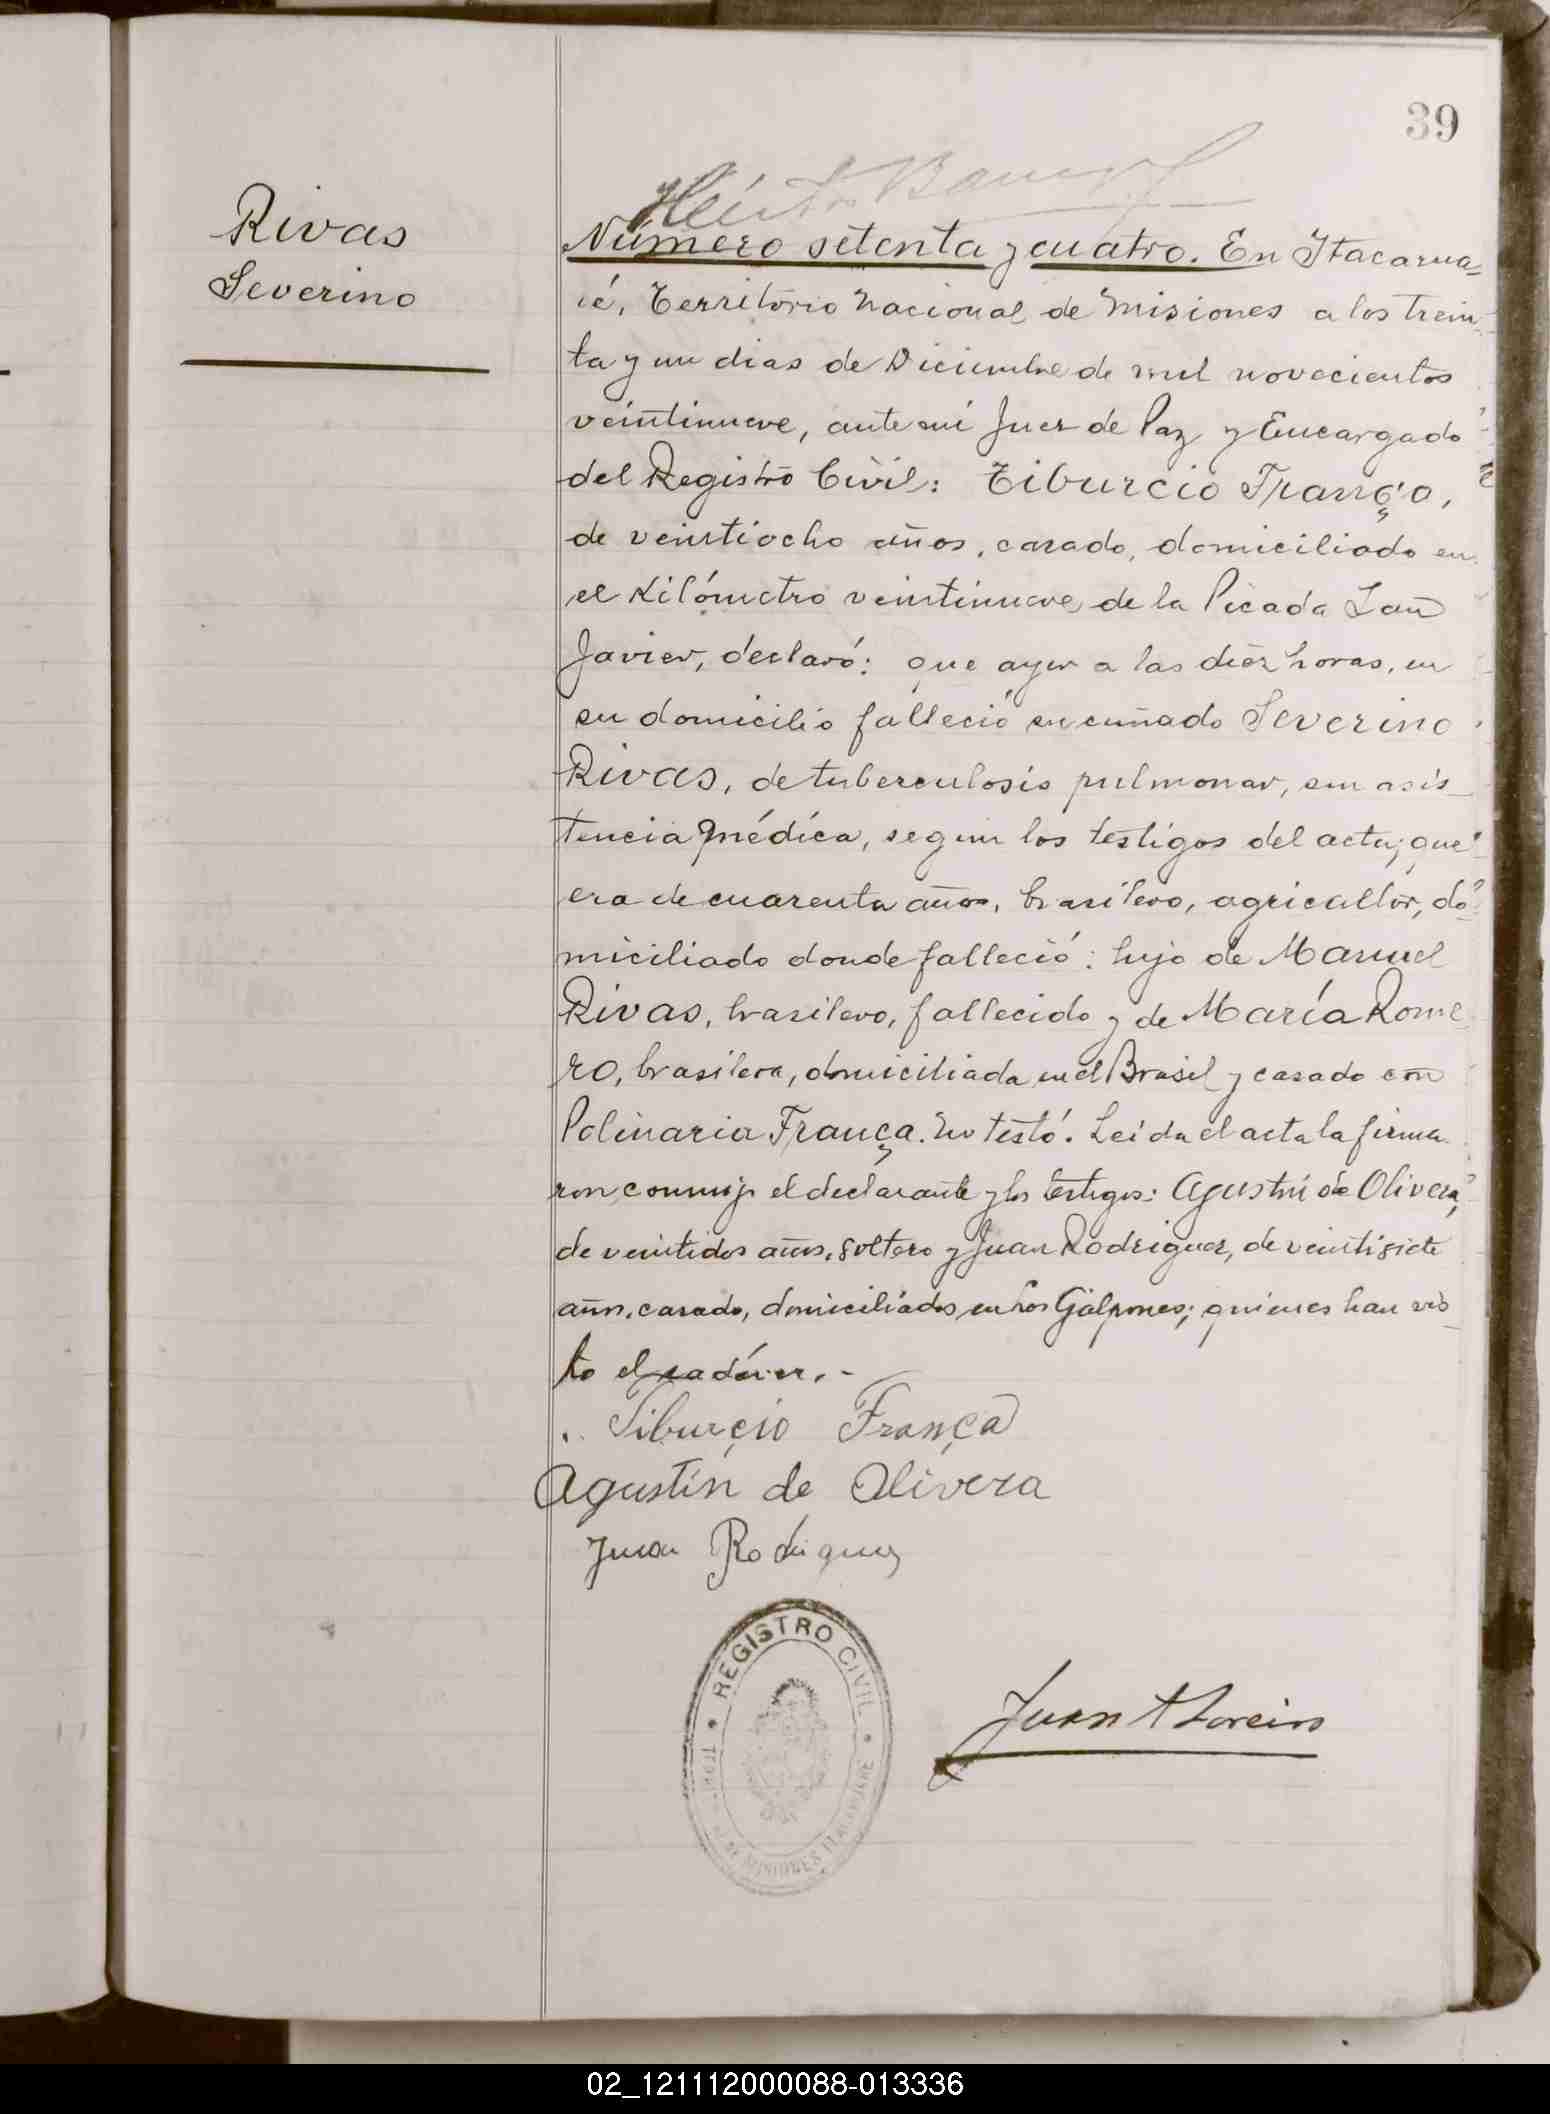 39
Rivas
Severino
Número setenta y cuatro. En Itacarua=
ié, Territorio Nacional de Misiones a los trein_
ta y un dias de Diciembre de mil novecientos
veintinueve, ante mi Juez de Paz y Encargado
del Registro Civil: Tiburcio França,
de veintiocho años, casado, domiciliado en
el Kilómetro veintinueve de la Picada San
Javier, declaró: que ayer a las diez horas, en
su domicilio falleció su cuñado Severino
Rivas, de tuberculosis pulmonar, sin asis_
tencia médica, segun los testigos del acta; que
era de cuarenta años, brasilero, agricultor, do_
miciliado donde falleció: hijo de Manuel
Rivas, brasilero, fallecido y de María Rome
ro, brasilera, domiciliada en el Brasil y casado con
Polinaria França. No testó. Leida el acta la firma
ron conmigo el declarante y los testigos: Agustin de Olivera,
de veintidos años, soltero y Juan Rodriguez, de veintisiete
años, casado, domiciliados en Los Galpones; quienes han vis_
to el cadáver.-
Tiburçio França
Agustín de Olivera
Juan Rodriguez
REGISTRO CIVIL
DE MISIONES ITACARUARE
Juan A Loreiro
02_121112000088-013336